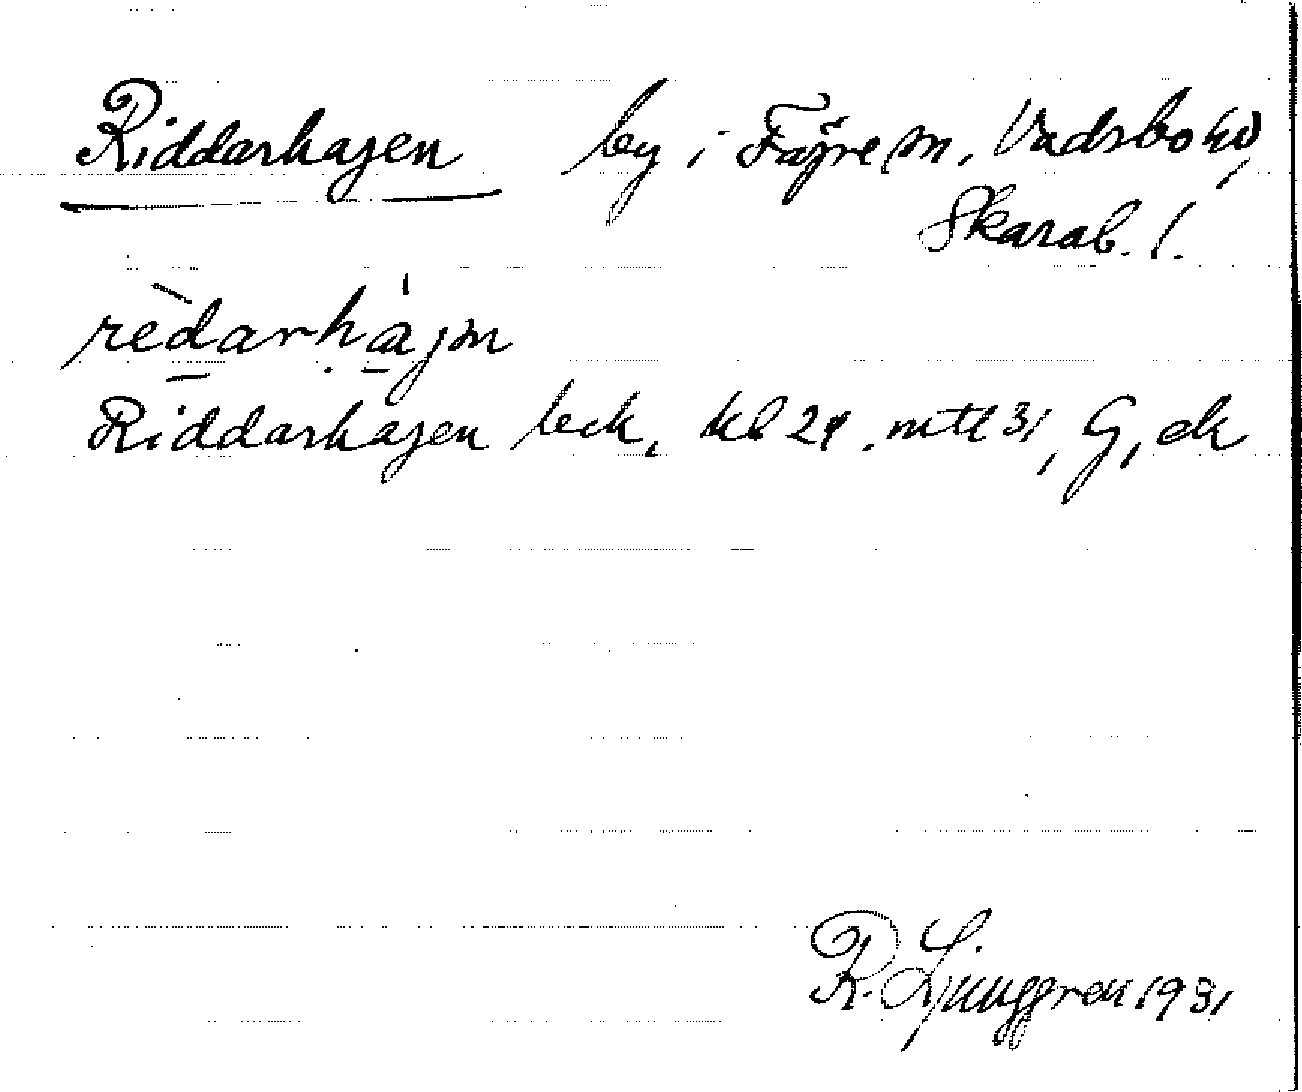 Riddarhagen by i Fägre sn, Vadsbo hd,
Skarab. l.
rèdarhàgn
Riddarhagen beck, kb 24, mtl 31, G, ek
R. Ljunggren 1931